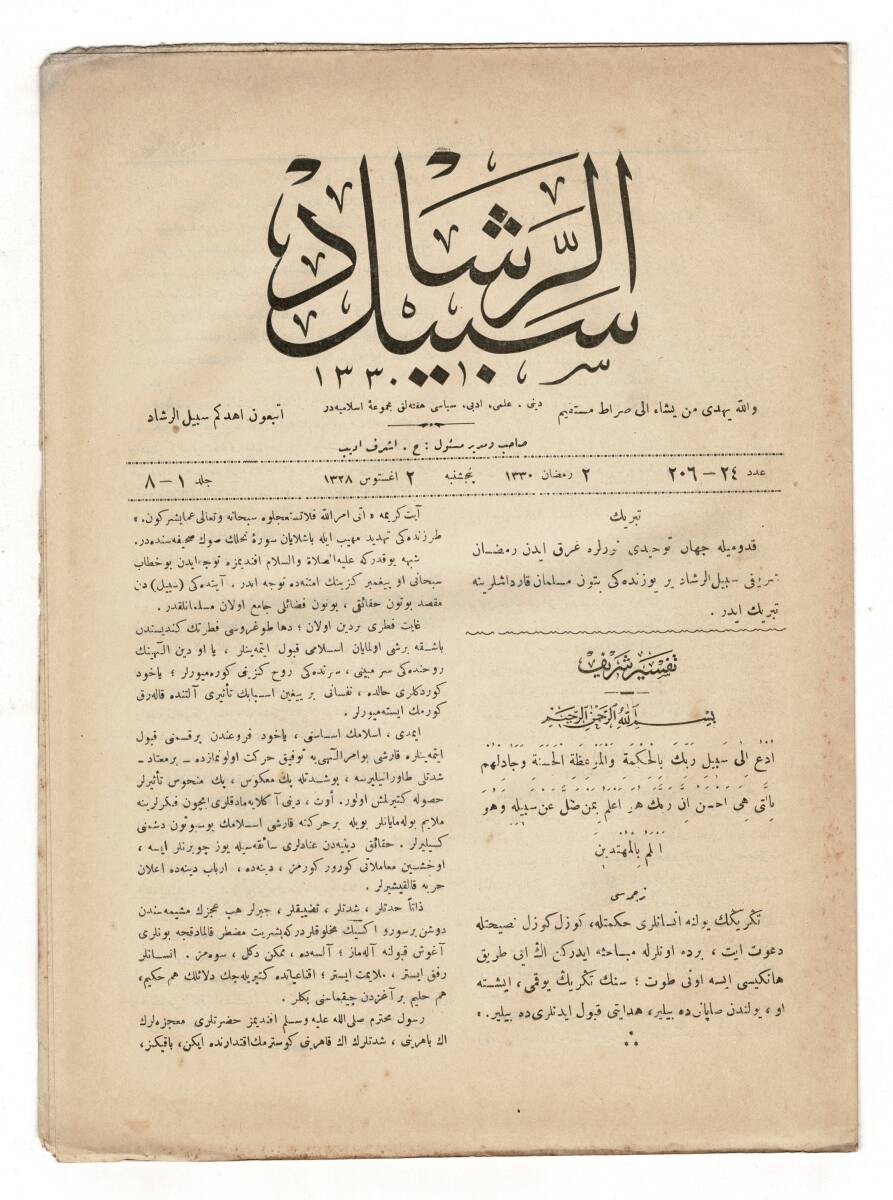 سبيل الرشاد
١٣٣٠
والله يهدى من يشاء الى صراط مستقيم
دينى ، علمى ، ادبى ، سياسى هفته لق مجموعهٔ اسلاميه در
اتبعون اهدكم سبيل الرشاد
صاحب و مدير مسئول : ح . اشرف اديب
عدد ٢٤ — ٢٠٦
٢ رمضان ١٣٣٠
پنجشنبه
٢ اغستوس ١٣٢٨
جلد ١ — ٨
تبريك
قدوميله جهان توحيدى نورلره غرق ايدن رمضان
شريفى سبيل الرشاد ير يوزنده كى بتون مسلمان قارداشلرينه
تبريك ايدر .
تفسير شريف
بسم الله الرحمن الرحيم
اُدْعُ اِلٰى سَبِيلِ رَبِّكَ بِالْحِكْمَةِ وَالْمَوْعِظَةِ الْحَسَنَةِ وَجَادِلْهُمْ
بِالَّتِى هِىَ اَحْسَنُ اِنَّ رَبَّكَ هُوَ اَعْلَمُ بِمَنْ ضَلَّ عَنْ سَبِيلِهِ وَهُوَ
اَعْلَمُ بِالْمُهْتَدِينَ
ترجمه سى
تكريكك يولنه انسانلرى حكمتله ، كوزل كوزل نصيحتله
دعوت ايت ، برده اونلرله مباحثه ايدركن اك ايى طريق
هانكيسى ايسه اونى طوت ؛ سنك تكريك يوقمى ، ايشته
او ، يولندن صاپانى ده بيلير ، هدايتى قبول ايدنلرى ده بيلير . »
آيت كريمه « اتى امر الله فلا تستعجلوه سبحانه وتعالى عما يشركون . »
طرزنده كى تهديد مهيب ايله باشلايان سورهٔ نحلك صوك صحيفه سنده در .
شبهه يوقدركه عليه الصلاة والسلام افنديمزه توجه ايدن بو خطاب
سبحانى او پيغمبر كزينك امتنه ده توجه ايدر . آيتده كى (سبيل) دن
مقصد بوتون حقائقى ، بوتون فضائلى جامع اولان مسلمانلقدر .
غايت فطرى بر دين اولان ؛ دها طوغروسى فطرتك كنديسندن
باشقه برشى اولمايان اسلامى قبول ايتمه ينلر ، يا او دين الهينك
روحنده كى سر مبينى ، سرنده كى روح كزينى كوره ميورلر ؛ ياخود
كوردكلرى حالده ، نفسانى بر ييغين اسبابك تأثيرى آلتنده قاله رق
كورمك ايسته ميورلر .
ايمدى ، اسلامك اساسنى ، ياخود فروعندن برقسمنى قبول
ايتمه ينلره قارشى بو امر الهى يه توفيق حركت اولونمازده — بر معتاد —
شدتلى طاورانيليرسه ، بو شدتله پك معكوس ، پك منحوس تأثيرلر
حصوله كتيرلمش اولور . أوت ، دينى آكلايه مادقلرى ايچون فكرلرينه
ملايم بوله مايانلر بويله بر حركته قارشى اسلامك بوسبوتون دشمنى
كسيليرلر . حقائق دينيه دن عنادلرى سائقه سيله يوز چويرنلر ايسه ،
او خشين معاملاتى كورور كورمز ، دينه ده ، ارباب دينه ده اعلان
حربه قالقيشيرلر .
ذاتاً حدتلر ، شدتلر ، تضييقلر ، جبرلر هپ عجزك مشيمه سندن
دوشن بر سورو اكسيك مخلوقلردركه بشريت مضطر قالمادقجه بونلرى
آغوش قبولنه آله ماز ؛ آلسه ده ، ممكن دكل ، سوه مز . انسانلر
رفق ايستر ، ملايمت ايستر ؛ اقناعياتده كتيريله جك دلائلك هم حكيم ،
هم حليم بر آغزدن چيقماسنى بكلر .
رسول محترم صلى الله عليه وسلم افنديمز حضرتلرى معجزه لرك
اك باهرينى ، شدتلرك اك قاهرينى كوسترمك اقتدارنده ايكن ، باقيكز ،